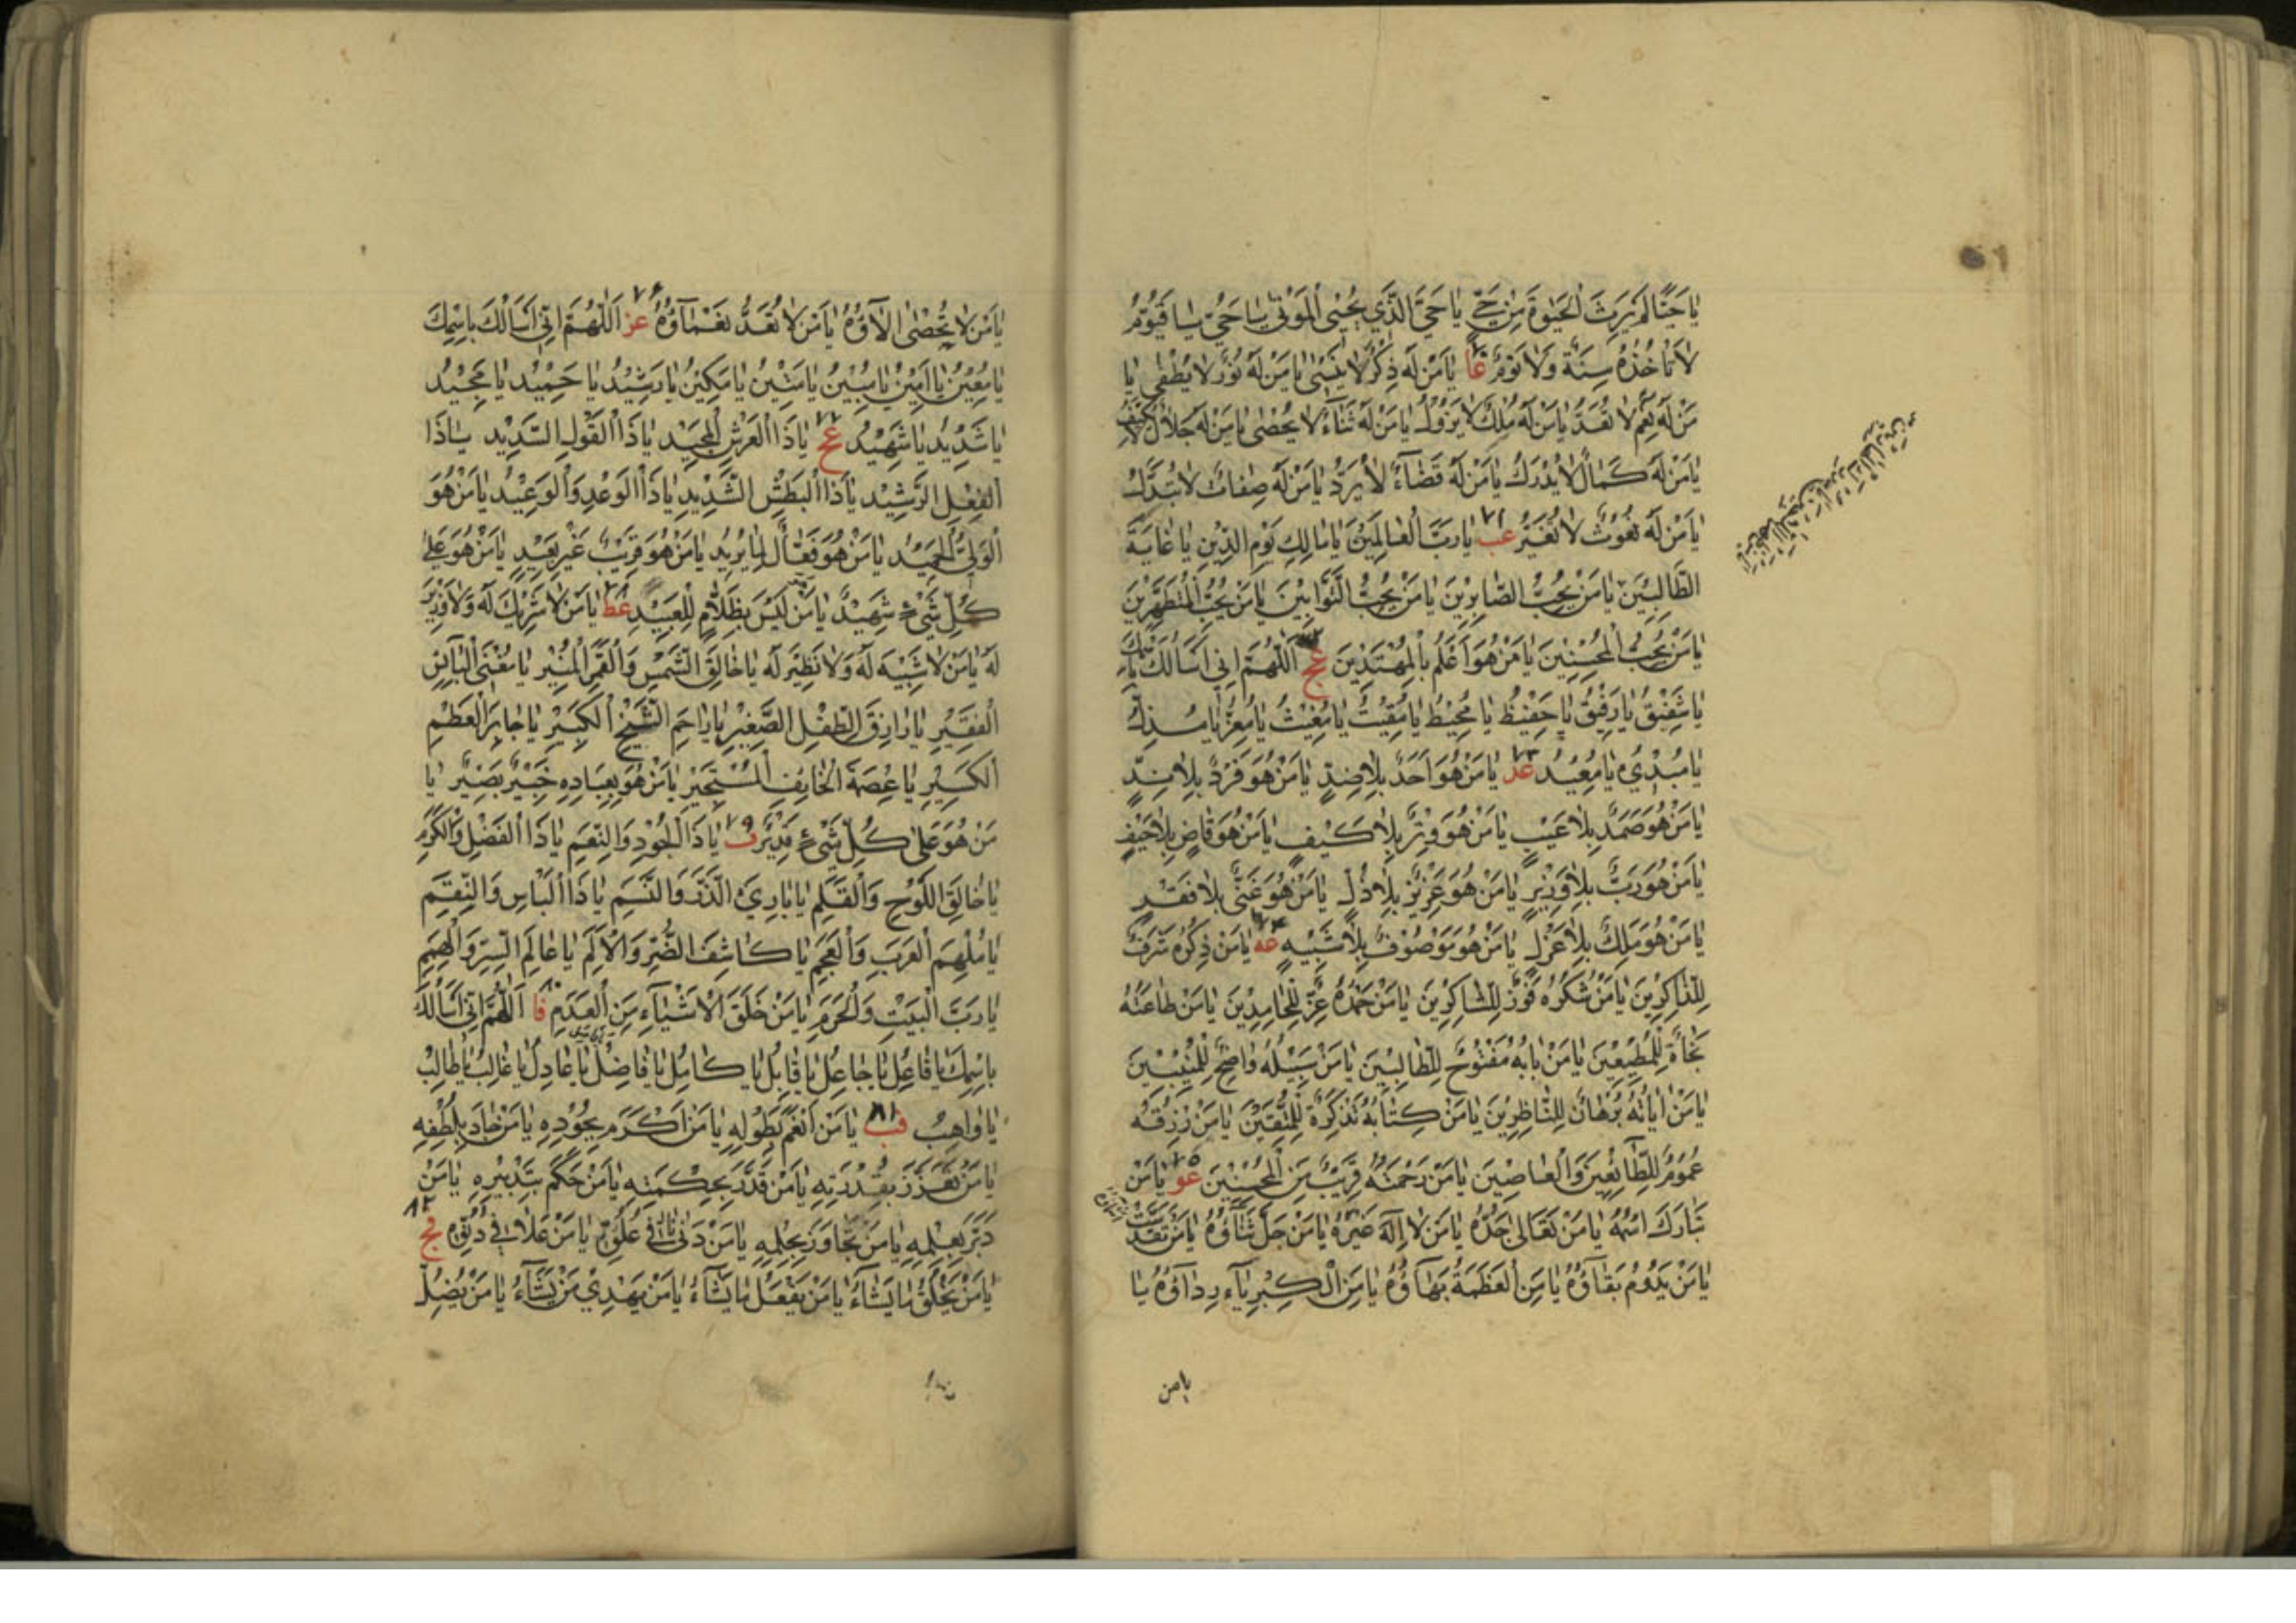 يٰا حَيًّا لَمْ يَرِثَ الْحَيٰوةَ مِنْ حَيٍّ يٰا حَيَّ الَّذَي يُحْيِى الْمَوْتٰى يٰا حَيُّ يٰا قَيُّوْمُ
لاٰ تَاْخُذُهُ سِنَةٌ وَلاٰ نَوْمٌ عا يٰا مَنْ لَهُ ذِكْرٌ لاٰ يُنْسٰى يٰا مَنْ لَهُ نُوْرٌ لاٰ يُطْفٰى يٰا
مَنْ لَهُ نِعَمٌ لاٰ تُعَدُّ يٰا مَنْ لَهُ مُلْكٌ لاٰ يَزُوْلُ يٰا مَنْ لَهُ ثَنٰاءٌ لاٰ يُحْصٰى يٰا مَنْ لَهُ جَلاٰلٌ لاٰ يُكَيَّفُ
يٰا مَنْ لَهُ كَمٰالٌ لاٰ يُدْرَكُ يٰا مَنْ لَهُ قَضٰاءٌ لاٰ يُرَدُّ يٰا مَنْ لَهُ صِفٰاتٌ لاٰ تُبَدَّلُ
يٰا مَنْ لَهُ نُعُوْتٌ لاٰ تُغَيَّرُ عب ٧١ يٰا رَبَّ الْعٰالَمِيْنَ يٰا مٰالِكِ يَوْمِ الدِّيْنِ يٰا غٰايَةَ
الطّٰالِبِيْنَ يٰا مَنْ يُحِبُّ الصّٰابِرِيْنَ يٰا مَنْ يُحِبُّ التَّوّٰابِيْنَ يٰا مَنْ يُحِبُّ الْمُتَطَهِّرِيْنَ
يٰا مَنْ يُحِبُّ الْمُحْسِنِيْنَ يٰا مَنْ هُوَ اَعْلَمُ بِالْمُهْتَدِيْنَ عج اَللّٰهُمَّ اِنِّي اَسْاَلُكَ بِاسْمِكَ
يٰا شَفِيْقُ يٰا رَفِيْقُ يٰا حَفِيْظُ يٰا مُحِيْطُ يٰا مُقِيْتُ يٰا مُغِيْثُ يٰا مُعِزُّ يٰا مُذِلُّ
يٰا مُبْدِئُ يٰا مُعِيْدُ عد ٧٣ يٰا مَنْ هُوَ اَحَدٌ بِلاٰ ضِدٍّ يٰا مَنْ هُوَ فَرْدٌ بِلاٰ نِدٍّ
يٰا مَنْ هُوَ صَمَدٌ بِلاٰ عَيْبٍ يٰا مَنْ هُوَ وِتْرٌ بِلاٰ كَيْفٍ يٰا مَنْ هُوَ قٰاضٍ بِلاٰ حَيْفٍ
يٰا مَنْ هُوَ رَبٌّ بِلاٰ وَزِيْرٍ يٰا مَنْ هُوَ عَزِيْزٌ بِلاٰ ذُلٍّ يٰا مَنْ هُوَ غَنِيٌّ بِلاٰ فَقْرٍ
يٰا مَنْ هُوَ مَلِكٌ بِلاٰ عَزْلٍ يٰا مَنْ هُوَ مَوْصُوْفٌ بِلاٰ شَبِيْهٍ عه ٧٤ يٰا مَنْ ذِكْرُهُ شَرَفٌ
لِلذّٰاكِرِيْنَ يٰا مَنْ شُكْرُهُ فَوْزٌ لِلشّٰاكِرِيْنَ يٰا مَنْ حَمْدُهُ عِزٌّ لِلْحٰامِدِيْنَ يٰا مَنْ طٰاعَتُهُ
نَجٰاةٌ لِلْمُطِيْعِيْنَ يٰا مَنْ بٰابُهُ مَفْتُوْحٌ لِلطّٰالِبِيْنَ يٰا مَنْ سَبِيْلُهُ وٰاضِحٌ لِلْمُنِيْبِيْنَ
يٰا مَنْ اٰيٰاتُهُ بُرْهٰانٌ لِلنّٰاظِرِيْنَ يٰا مَنْ كِتٰابُهُ تَذْكِرَةٌ لِلْمُتَّقِيْنَ يٰا مَنْ رِزْقُهُ
عُمُوْمٌ لِلطّٰائِعِيْنَ وَالْعٰاصِيْنَ يٰا مَنْ رَحْمَتُهُ قَرِيْبٌ مِنَ الْمُحْسِنِيْنَ عو ٧٥ يٰا مَنْ
تَبٰارَكَ اسْمُهُ يٰا مَنْ تَعٰالىٰ جَدُّهُ يٰا مَنْ لاٰ اِلٰهَ غَيْرُهُ يٰا مَنْ جَلَّ ثَنٰاؤُهُ يٰا مَنْ تَقَدَّسَتْ اَسْمٰاؤُهُ
يٰا مَنْ يَدُوْمُ بَقٰاؤُهُ يٰا مَنِ الْعَظَمَةُ بَهٰاؤُهُ يٰا مَنِ الْكِبْرِيٰاءُ رِدٰاؤُهُ يٰا
يامن
يٰا مَنْ لاٰ تُحْصٰى اٰلاٰؤُهُ يٰا مَنْ لاٰ تُعَدُّ نَعْمٰاؤُهُ عز ٧٦ اَللّٰهُمَّ اِنِّي اَسْاَلُكَ بِاسْمِكَ
يٰا مُعِيْنُ يٰا اَمِيْنُ يٰا مُبِيْنُ يٰا مَتِيْنُ يٰا مَكِيْنُ يٰا رَشِيْدُ يٰا حَمِيْدُ يٰا مَجِيْدُ
يٰا شَدِيْدُ يٰا شَهِيْدُ عح ٧٧ يٰا ذَا الْعَرْشِ الْمَجِيْدِ يٰا ذَا الْقَوْلِ السَّدِيْدِ يٰا ذَا
الْفِعْلِ الرَّشِيْدِ يٰا ذَا الْبَطْشِ الشَّدِيْدِ يٰا ذَا الْوَعْدِ وَالْوَعِيْدِ يٰا مَنْ هُوَ
الْوَلِيُّ الْحَمِيْدُ يٰا مَنْ هُوَ فَعّٰالٌ لِمٰا يُرِيْدُ يٰا مَنْ هُوَ قَرِيْبٌ غَيْرُ بَعِيْدٍ يٰا مَنْ هُوَ عَلىٰ
كُلِّ شَيْءٍ شَهِيْدٌ يٰا مَنْ لَيْسَ بِظَلاّٰمٍ لِلْعَبِيْدِ عط ٧٨ يٰا مَنْ لاٰ شَرِيْكَ لَهُ وَلاٰ وَزِيْرَ
لَهُ يٰا مَنْ لاٰ شَبِيْهَ لَهُ وَلاٰ نَظِيْرَ لَهُ يٰا خٰالِقَ الشَّمْسِ وَالْقَمَرِ الْمُنِيْرِ يٰا مُغْنِيَ الْبٰائِسِ
الْفَقِيْرِ يٰا رٰازِقَ الطِّفْلِ الصَّغِيْرِ يٰا رٰاحِمَ الشَّيْخِ الْكَبِيْرِ يٰا جٰابِرَ الْعَظْمِ
الْكَسِيْرِ يٰا عِصْمَةَ الْخٰائِفِ الْمُسْتَجِيْرِ يٰا مَنْ هُوَ بِعِبٰادِهِ خَبِيْرٌ بَصِيْرٌ يٰا
مَنْ هُوَ عَلىٰ كُلِّ شَيْءٍ قَدِيْرٌ ف ٧٩ يٰا ذَا الْجُوْدِ وَالنِّعَمِ يٰا ذَا الْفَضْلِ وَالْكَرَمِ
يٰا خٰالِقَ اللَّوْحِ وَالْقَلَمِ يٰا بٰارِئَ الذَّرِّ وَالنَّسَمِ يٰا ذَا الْبَاْسِ وَالنِّقَمِ
يٰا مُلْهِمَ الْعَرَبِ وَالْعَجَمِ يٰا كٰاشِفَ الضُّرِّ وَالْاَلَمِ يٰا عٰالِمَ السِّرِّ وَالْهِمَمِ
يٰا رَبَّ الْبَيْتِ وَالْحَرَمِ يٰا مَنْ خَلَقَ الْاَشْيٰاءَ مِنَ الْعَدَمِ فا ٨٠ اَللّٰهُمَّ اِنِّي اَسْاَلُكَ
بِاسْمِكَ يٰا فٰاعِلُ يٰا جٰاعِلُ يٰا قٰابِلُ يٰا كٰامِلُ يٰا فٰاضِلُ يٰا عٰادِلُ يٰا غٰالِبُ يٰا طٰالِبُ
يٰا وٰاهِبُ فب ٨١ يٰا مَنْ اَنْعَمَ بِطَوْلِهِ يٰا مَنْ اَكْرَمَ بِجُوْدِهِ يٰا مَنْ جٰادَ بِلُطْفِهِ
يٰا مَنْ تَعَزَّزَ بِقُدْرَتِهِ يٰا مَنْ قَدَّرَ بِحِكْمَتِهِ يٰا مَنْ حَكَمَ بِتَدْبِيْرِهِ يٰا مَنْ
دَبَّرَ بِعِلْمِهِ يٰا مَنْ تَجٰاوَزَ بِحِلْمِهِ يٰا مَنْ دَنٰى فِي عُلُوِّهِ يٰا مَنْ عَلاٰ فِي دُنُوِّهِ فج ٨٢
يٰا مَنْ يَخْلُقُ مٰا يَشٰاءُ يٰا مَنْ يَفْعَلُ مٰا يَشٰاءُ يٰا مَنْ يَهْدِيْ مَنْ يَشٰاءُ يٰا مَنْ يُضِلُّ